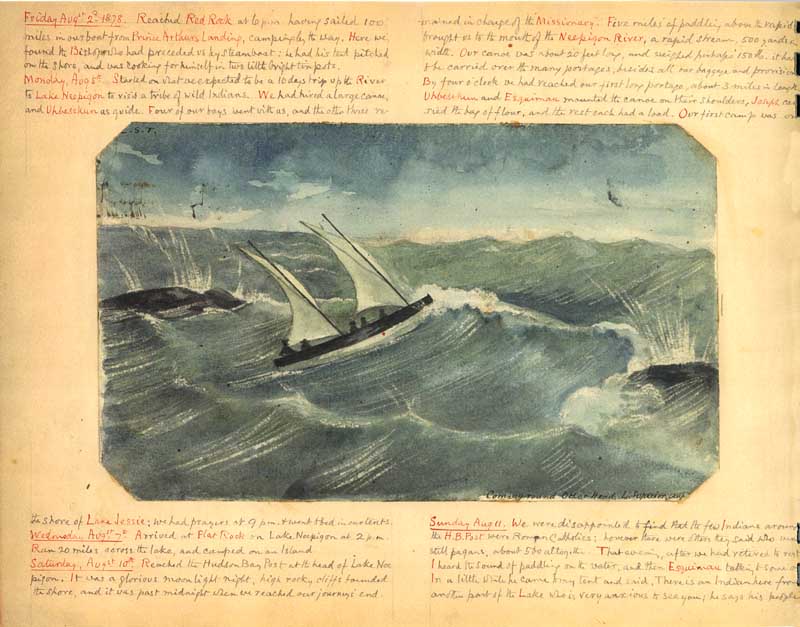 Friday Augst 2d 1878. Reached Red Rock at 10 p.m. having sailed 100
miles in our boat from Prince Arthurs Landing, camping by the way. Here we
found the Bishop who had preceded us by steamboat; he had his tent pitched
on the shore, and was cooking for himself in two little bright tin pots.
Monday, Aug 5th. Started on what we expected to be a 10 days trip up the River
to Lake Neepigon to visit a tribe of wild Indians. We had hired a large canoe,
and Uhbesekun as guide. Four of our boys went with us, and the other three re-
mained in charge of the Missionary. Five miles of paddling, above the rapid
brought us to the mouth of the Neepigon River, a rapid stream, 500 yards in
width. Our canoe was about 20 feet long, and weighed perhaps 150 lb. it had
to be carried over the many portages, besides all our baggage and provisions
By four o'clock we had reached our first long portage, about 3 miles in length
Uhbesekun and Esquimau mounted the canoe on their shoulders, Joseph car
ried the bag of flour, and the rest each had a load. Our first camp was on
E.S.T.
Coming round Otter Head, L. Superior, Aug
the shore of Lake Jessie; we had prayers at 9 p.m. & went to bed in our tents.
Wednesday Augst 7th Arrived at Flat Rock on Lake Neepigon at 2 p.m.
Ran 20 miles across the lake, and camped on an Island
Saturday, Augst 10th. Reached the Hudson Bay Post at the head of Lake Nee
pigon. It was a glorious moonlight night, high rocky cliffs bounded
the shore, and it was past midnight when we reached our journeys end.
Sunday Aug 11. We were disappointed to find that the few Indians around
the H.B. Post were Roman Catholics; however there were others they said who were
still pagans, about 500 altogether. That evening, after we had retired to rest
I heard the sound of paddling on the water, and then Esquimau talking to some one
In a little while he came to my tent and said, There is an Indian here from
another part of the Lake who is very anxious to see you; he says his people